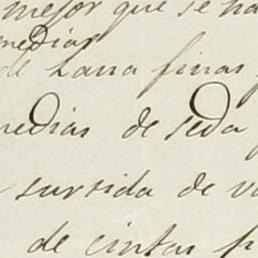 mejor que se ha
medias
de Lana finas
medias de seda
surtida de
de cintas